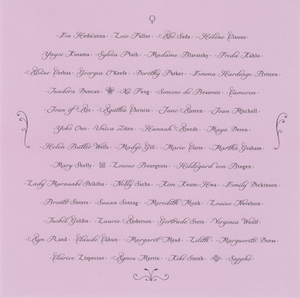 Eva Hesse • Loie Fuller • Abe Sada • Hélène Cixous
Yayoi Kusama • Sylvia Plath • Madame Blavatsky • Frida Kahlo
Georgia O'Keefe • Dorothy Parker • Emma Hardinge Britten
Isadora Duncan • Simone de Beauvoir • Cameron
Joan of Arc • Agatha Christie • Jane Austen • Joan Mitchell
Yoko Ono • Unica Zürn • Hannah Arendt • Maya Deren
Helen Butler Wells • Madge Gill • Marie Curie • Martha Graham
Mary Shelly • Louise Bourgeois • Hildegard von Bingen
Lady Murasaki Shikibu • Nelly Sachs • Emily Dickinson
Brontë Sisters • Susan Sontag • Meredith Monk • Louise Nevelson
Isobel Gowdie • Laurie Anderson • Gertrude Stein • Virginia Woolf
Ayn Rand • Claude Cahun • Margaret Mead • Lilith • Marguerite Duras
Clarice Lispector • Agnes Martin • Kiki Smith • Sappho